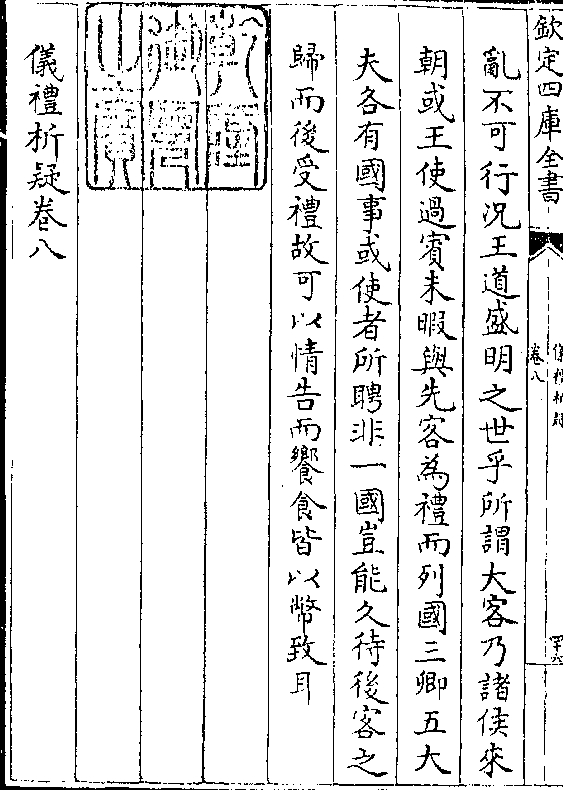 欽定四庫全書
儀禮析疑
卷八
四六
亂不可行况王道盛明之世乎所謂大客乃諸侯來
朝或王使過賓未暇與先客為禮而列國三卿五大
夫各有國事或使者所聘非一國豈能久待後客之
歸而後受禮故可以情告而饗食皆以幣致耳
乾隆御覽之寶
儀禮析疑卷八